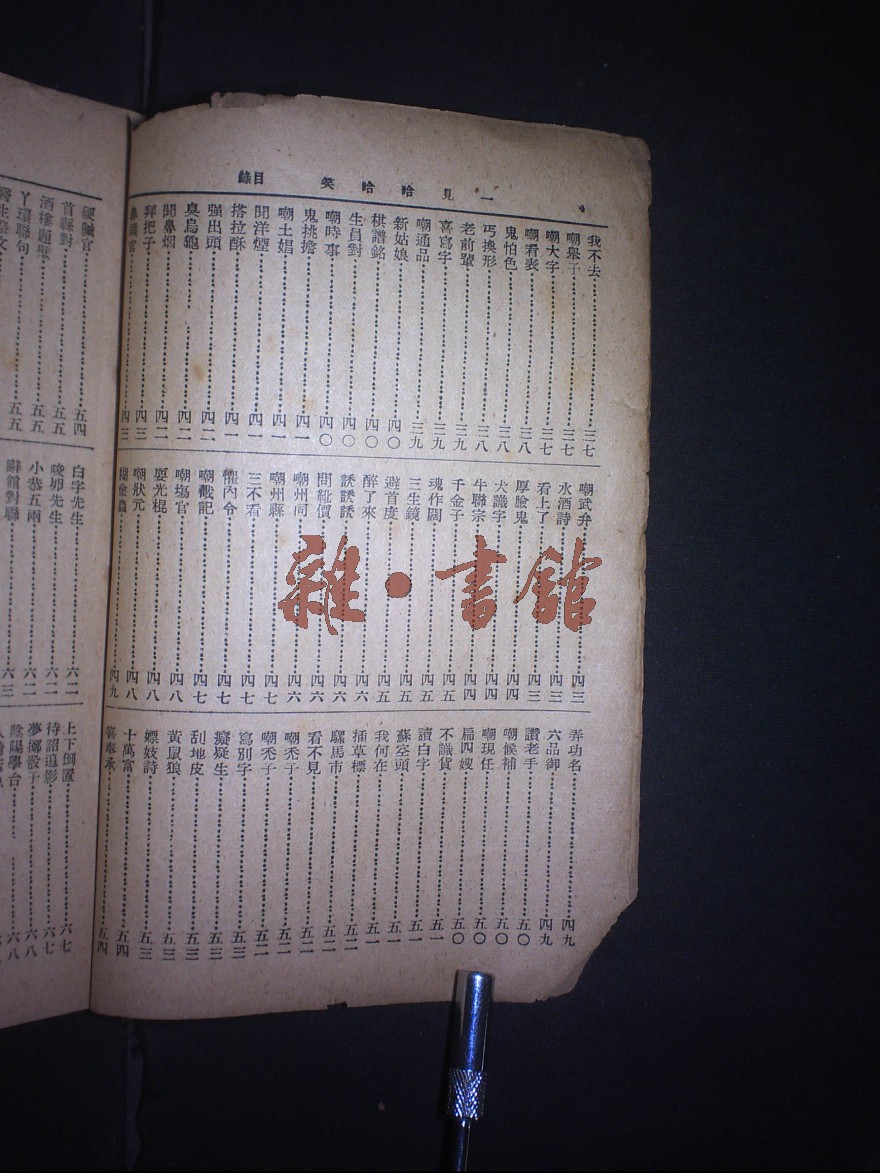 一見哈哈笑 目錄 4
我不去 三七
嘲舉子 三七
嘲大字 三七
嘲看表 三八
鬼怕色 三八
丐換形 三八
老前輩 三九
喜寫字 三九
嘲通品 三九
新姑娘 四〇
棋譜銘 四〇
生員對 四〇
嘲時事 四〇
鬼挑擔 四一
嘲土娼 四一
聞洋煙 四一
搭拉酥 四一
强出頭 四二
臭烏龜 四二
聞鼻烟 四二
拜把子 四三
官 四三
嘲武弁 四三
水酒詩 四三
看上了 四三
厚臉鬼 四四
犬識字 四四
牛聯宗 四四
千金子 四五
魂作闊 四五
三生鏡 四五
避首度 四五
醉了來 四六
誘誘誘 四六
問靴價 四六
嘲州同 四六
嘲州縣 四七
三不看 四七
懼內令 四七
嘲戳記 四七
嘲塲官 四八
耍光棍 四八
嘲狀元 四八
蟲 四九
弄功名 四九
六品御 四九
讚老手 五〇
嘲候補 五〇
嘲現任 五〇
扁四嫂 五〇
不識貨 五一
讀白字 五一
蘇空頭 五一
我何在 五一
插草標 五二
騾馬市 五二
看不見 五二
嘲禿子 五二
嘲禿子 五二
寫別字 五三
癡疑生 五三
刮地皮 五三
黃鼠狼 五三
嫖妓詩 五三
十萬富 五四
喜奉承 五四
硬鹹官 五四
首縣對 五五
酒樓題壁 五五
丫環聯句 五五
白字先生 六二
唆卵先生 六二
小恭五兩 六二
辭館對聯 六三
上下倒置 六七
待詔追影 六七
夢擲骰子 六八
陰陽學台 六八
雜·書館